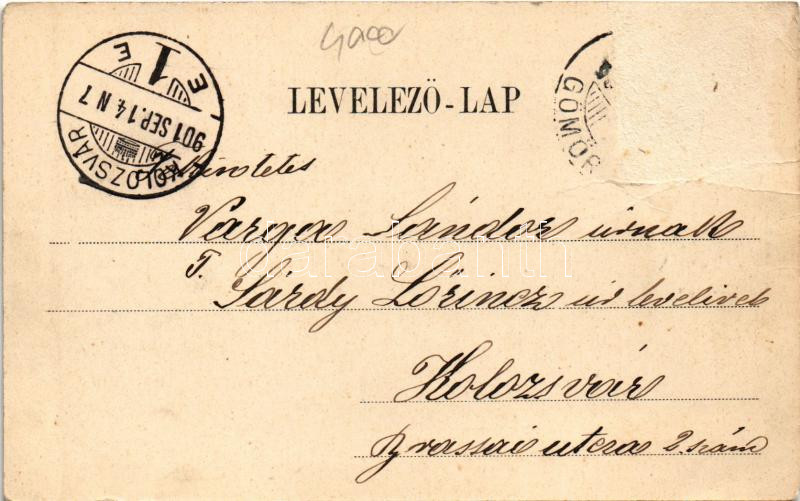 LEVELEZŐ-LAP
KOLOZSVÁR
901 SEP. 14 N 7
1
E E
GÖMÖR
Varga Sándor úrnak
T. Sárdy Lőrincz úr levelivel
Kolozsvár
Brassai utcza 2. szám
darabanth